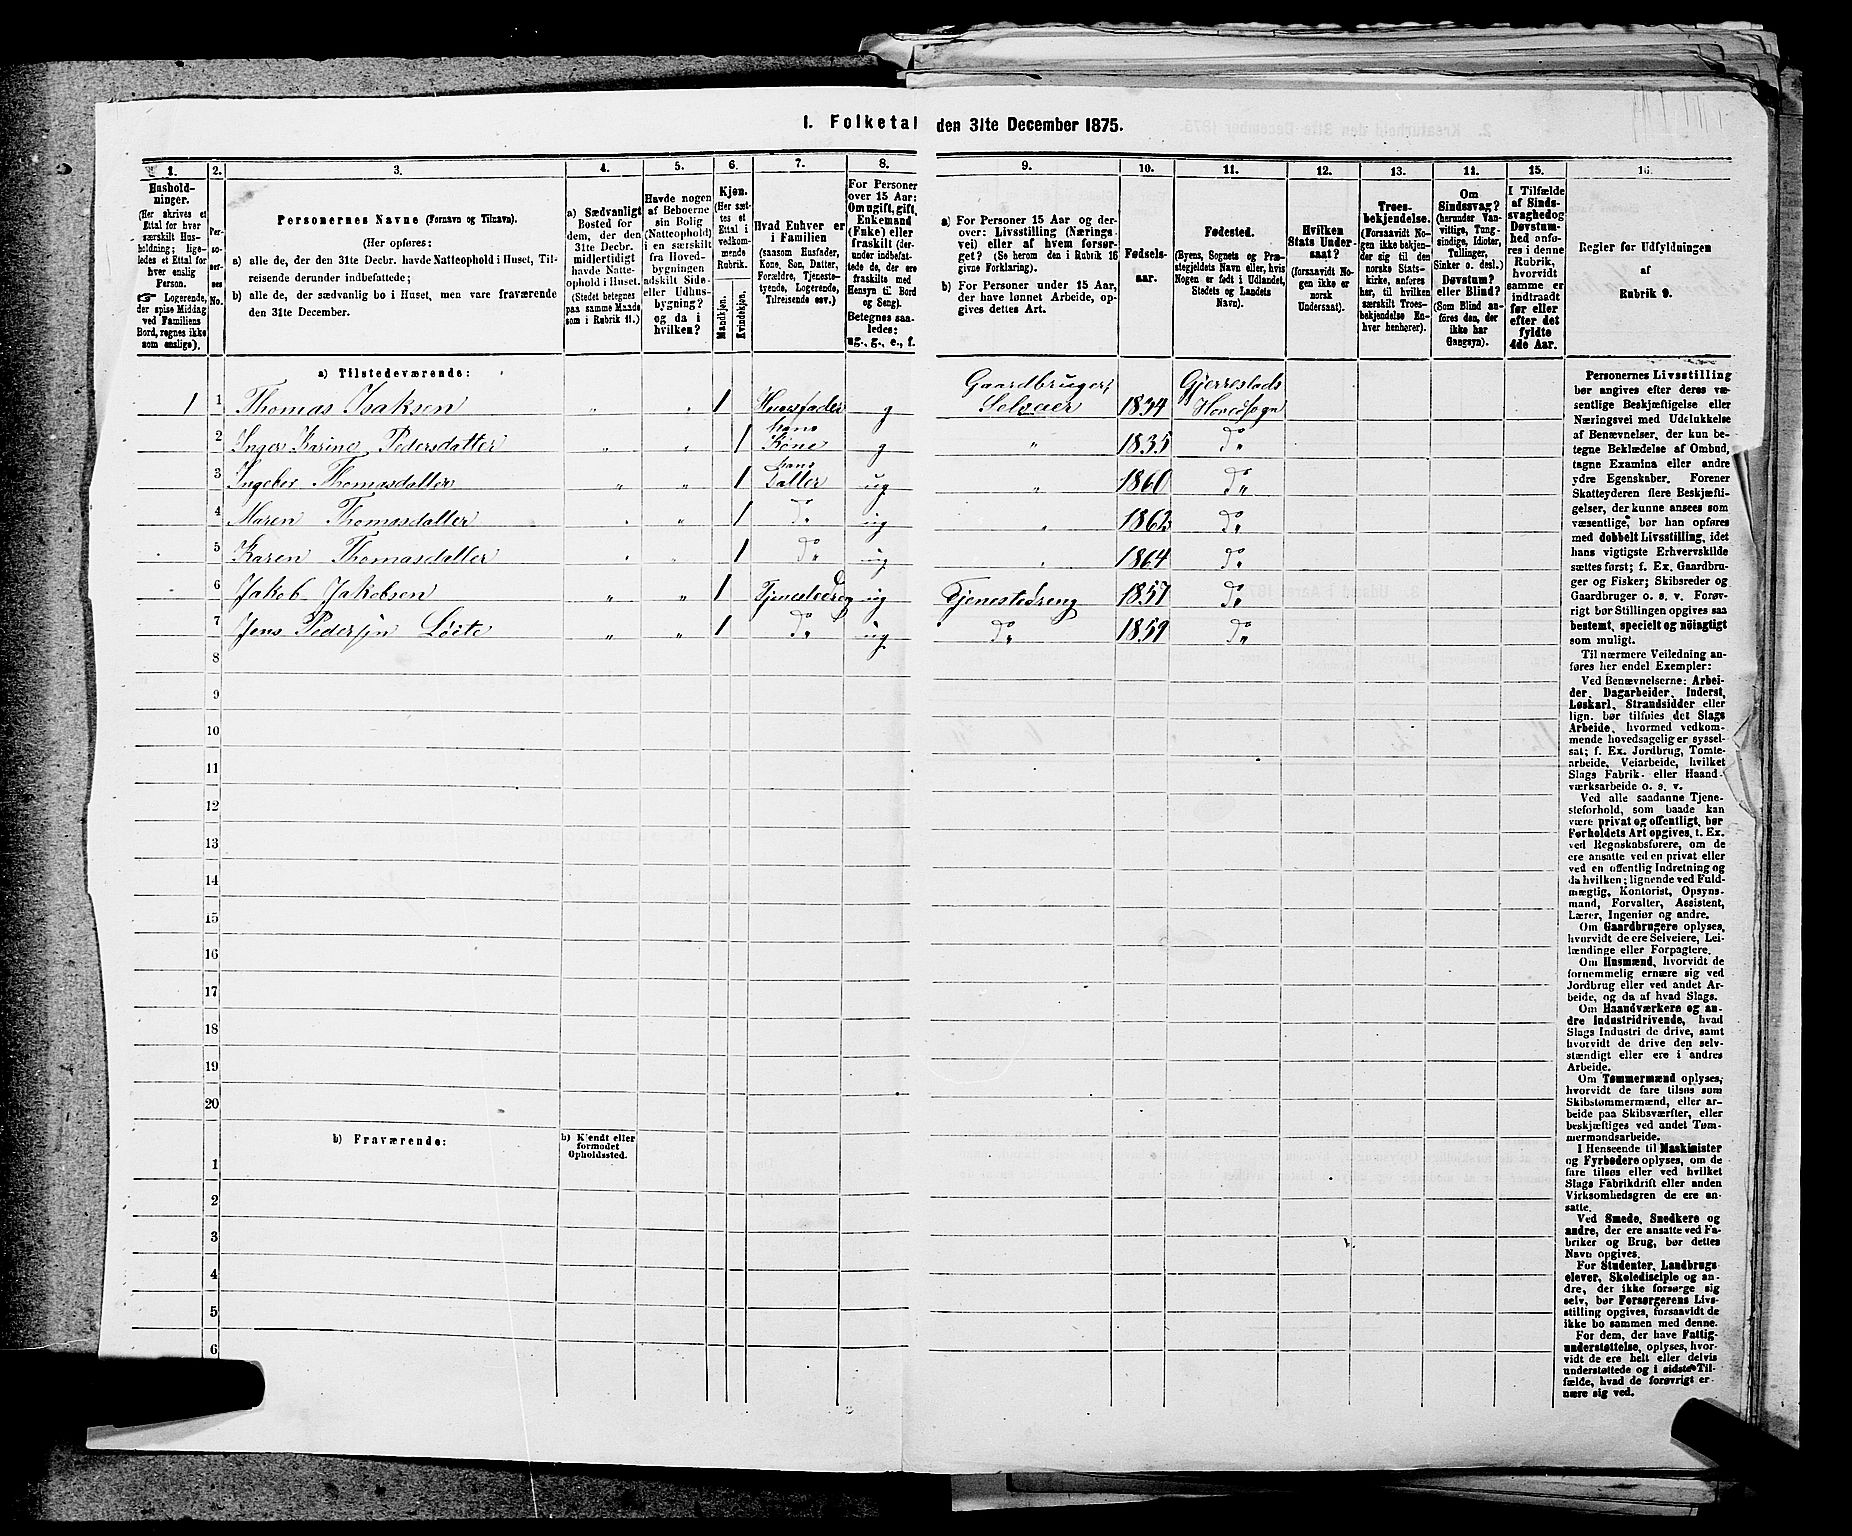 I. Folketal den 31te December 1875.
1. 2. 3. 4. 5. 6. 7. 8. 9. 10. 11. 12. 13. 14. 15. 16.
Husholdninger.
(Her skrives et
Ettal for hver
særskilt Husholdning;
ligeledes et Ettal for
hver enslig
Person.
Logerende,
der spise Middag
ved Familiens
Bord, regnes ikke
som enslige).
Personernes No.
Personernes Navne (Fornavn og Tilnavn).
(Her opføres:
a) alle de, der den 31te Decbr. havde Natteophold i Huset, Tilreisende derunder indbefattede;
b) alle de, der sædvanlig bo i Huset, men vare fraværende
den 31te December.
a) Sædvanligt
Bosted for
dem, der den
31te Decbr.
midlertidigt
havde Natteophold i Huset.
(Stedet betegnes
paa samme Maade
som i Rubrik 11.)
Havde nogen
af Beboerne
sin Bolig
(Natteophold)
i en særskilt
fra Hovedbygningen
adskilt Side-
eller Udhusbygning?
og da i
hvilken?
Kjøn.
(Her sættes et
Ettal i
vedkommende
Rubrik.
Mandkjøn.
Kvindekjøn.
Hvad Enhver er
i Familien
(saasom Husfader,
Kone, Søn, Datter,
Forældre, Tjenestetyende, Logerende,
Tilreisende osv.)
For Personer
over 15 Aar:
Om ugift, gift,
Enkemand
(Enke) eller
fraskilt (derunder indbefattede de, der ere
fraskilte med
Hensyn til Bord
og Seng).
Betegnes saaledes:
ug., g., e., f.
a) For Personer 15 Aar og derover: Livsstilling (Næringsvei) eller af hvem forsørget? (Se herom den i Rubrik 16
givne Forklaring).
b) For Personer under 15 Aar,
der have lønnet Arbeide, opgives dettes Art.
Fødselsaar.
Fødested.
(Byens, Sognets og Præstegjeldets Navn eller, hvis
Nogen er født i Udlandet,
Stedets og Landets
Navn).
Hvilken
Stats Undersaat?
(forsaavidt Nogen ikke er
norsk
Undersaat).
Troesbekjendelse.
(Forsaavidt Nogen ikke bekjender sig til den
norske Statskirke, anføres
her, til hvilken
særskilt Troesbekjendelse Enhver henhører).
Om
Sindssvag?
(herunder Vanvittige, Tungsindige, Idioter,
Tullinger,
Sinker o. desl.)
Døvstum?
eller Blind?
(Som Blind anføres den, der
ikke har
Gangsyn).
I Tilfælde
af Sindssvaghed og
Døvstumhed anføres i denne
Rubrik,
hvorvidt
samme er
indtraadt
før eller
efter det
fyldte
4de Aar.
Regler for Udfyldningen
af
Rubrik 9.
a) Tilstedeværende:
1 1 Thomas Isaksen " " 1 Huusfader g Gaardbruger, Selveier 1834 Gjerrestads Hovedsogn
2 Inger Karine Pedersdatter " " 1 hans Kone g " 1835 Do
3 Ingeber Thomasdatter " " 1 hans Datter ug " 1860 Do
4 Maren Thomasdatter " " 1 Do ug " 1862 Do
5 Karen Thomasdatter " " 1 Do ug " 1864 Do
6 Jakob Jakobsen " " 1 Tjenestedreng ug Tjenestedreng 1857 Do
7 Jens Pedersen " " 1 Do ug Do 1859 Do
8
9
10
11
12
13
14
15
16
17
18
19
20
b) Fraværende: b) Kjendt eller
formodet
Opholdssted.
1
2
3
4
5
6
Personernes Livsstilling
bør angives efter deres væsentlige Beskjæftigelse eller
Næringsvei med Udelukkelse
af Benævnelser, der kun betegne Beklædelse af Ombud,
tagne Examina eller andre
ydre Egenskaber. Forener
Skatteyderen flere Beskjæftigelser, der kunne ansees som
væsentlige, bør han opføres
med dobbelt Livsstilling, idet
hans vigtigste Erhvervskilde
sættes først; f. Ex. Gaardbruger og Fisker; Skibsreder og
Gaardbruger o. s. v. Forøvrigt bør Stillingen opgives saa
bestemt, specielt og nöiagtigt
som muligt.
Til nærmere Veiledning anføres her endel Exempler:
Ved Benævnelserne: Arbeider, Dagarbeider, Inderst,
Løskarl, Strandsidder eller
lign. bør tilføies det Slags
Arbeide, hvormed vedkommende hovedsagelig er sysselsat; f. Ex. Jordbrug, Tomtearbeide, Veiarbeide, hvilket
Slags Fabrik- eller Haandværksarbeide o. s. v.
Ved alle saadanne Tjenesteforhold, som baade kan
være privat og offentligt, bør
Forholdets Art opgives, t. Ex.
ved Regnskabsførere, om de
ere ansatte ved en privat eller
ved en offentlig Indretning og
da hvilken; lignende ved Fuldmægtig, Kontorist, Opsynsmand, Forvalter, Assistent,
Lærer, Ingeniør og andre.
Om Gaardbrugere oplyses,
hvorvidt de ere Selveiere, Leilændinge eller Forpagtere.
Om Husmænd, hvorvidt de
fornemmelig ernære sig ved
Jordbrug eller ved andet Arbeide, og da af hvad Slags.
Om Haandværkere og andre Industridrivende, hvad
Slags Industri de drive, samt
hvorvidt de drive den selvstændigt eller ere i andres
Arbeide.
Om Tømmermænd oplyses,
hvorvidt de fare tilsøs som
Skibstømmermænd, eller arbeide paa Skibsværfter, eller
beskjæftiges ved andet Tømmermandsarbeide.
I Henseende til Maskinister
og Fyrbødere oplyses, om de
fare tilsøs eller ved hvilket
Slags Fabrikdrift eller anden
Virksomhedsgren de ere ansatte.
Ved Smede, Snedkere og
andre, der ere ansatte ved Fabriker og Brug, bør dettes
Navn opgives.
For Studenter, Landbrugselever, Skoledisciple og andre, der ikke forsørge sig
selv, bør Forsørgerens Livsstilling opgives, forsaavidt de
ikke bo sammen med denne.
For dem, der have Fattigunderstøttelse, oplyses, hvorvidt de ere helt eller delvis
understøttede og i sidste Tilfælde, hvad de forøvrigt ernære sig ved.